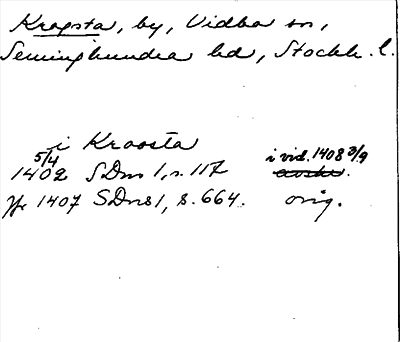 Kragsta, by, Vidbo sn,
Seminghundra hd, Stockh. l.
i Kraosta
5/4 i vid. 1408 3/9
1402 SDns 1, s. 117 avskr.
1407 SDns 1, s. 664. orig.